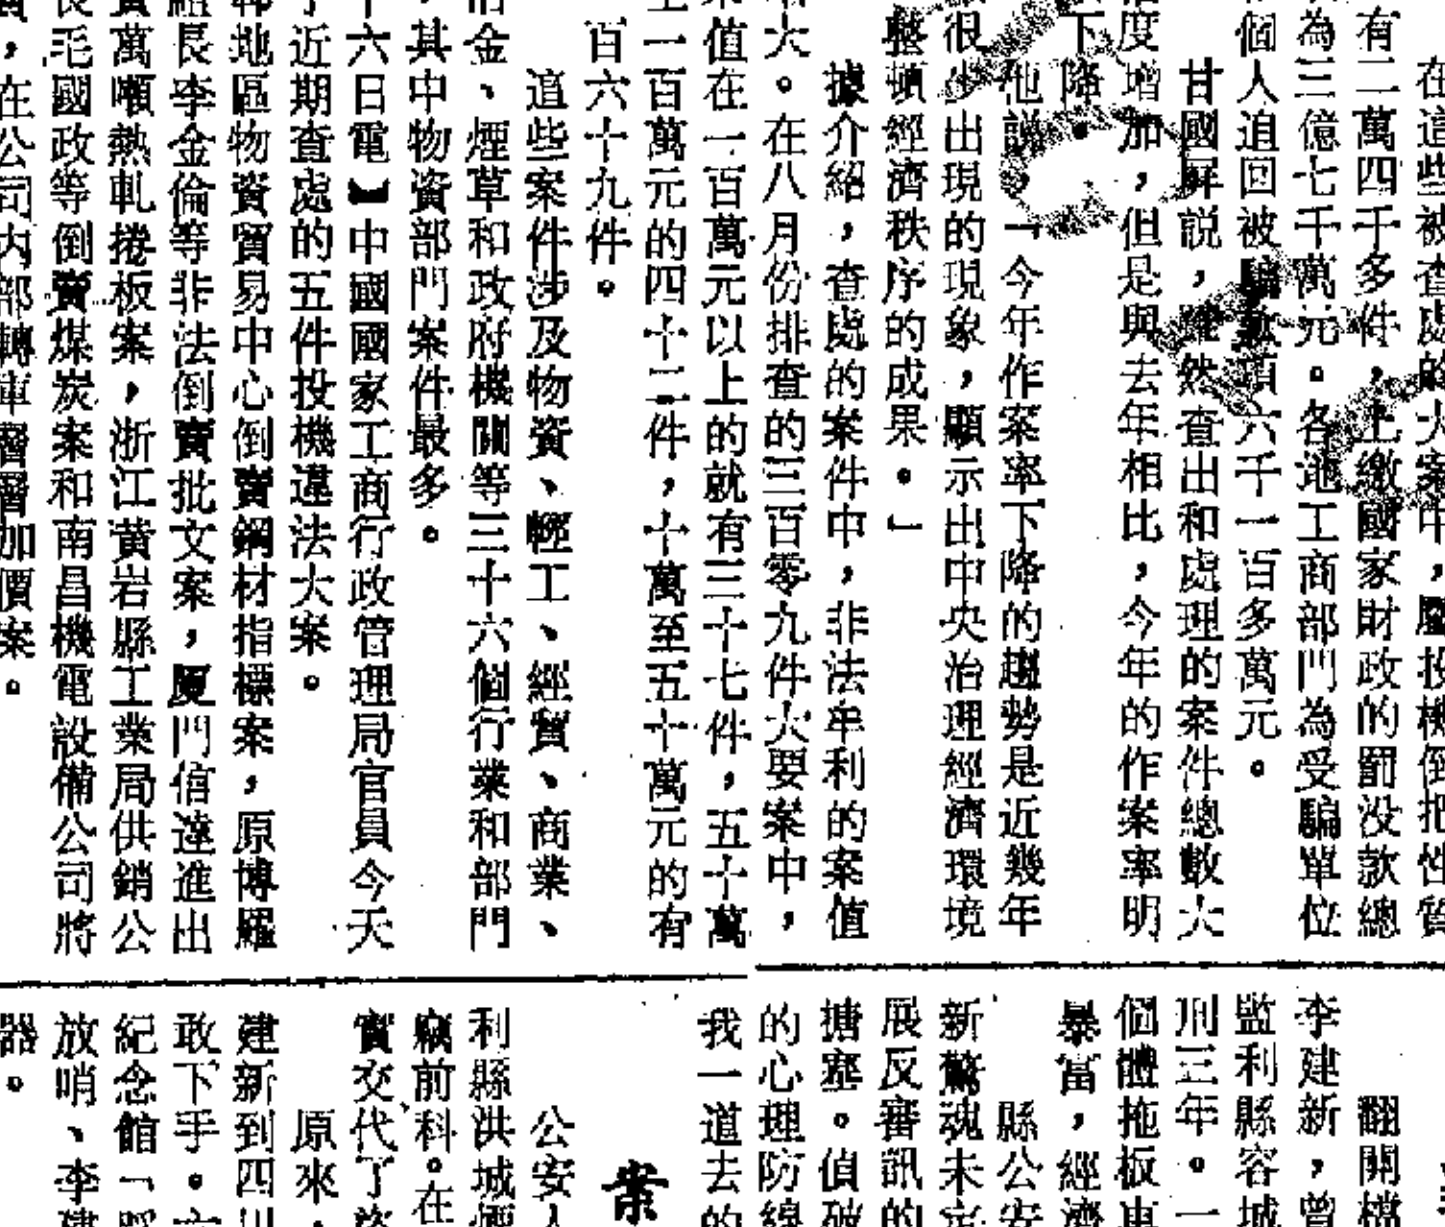 在這些被查處的大案中，屬投機倒把性質
有二萬四千多件，上繳國家財政的罰没款總
為三億七千萬元。各地工商部門為受騙單位
個人追回被騙款項六千一百多萬元。
甘國屏説，雖然查出和處理的案件總數大
度增加，但是與去年相比，今年的作案率明
下降。
他説「今年作案率下降的趨勢是近幾年
很少出現的現象，顯示出中央治理經濟環境
整頓經濟秩序的成果。」
據介紹，查處的案件中，非法牟利的案值
大。在八月份排查的三百零九件大要案中，
值在一百萬元以上的就有三十七件，五十萬
一百萬元的四十二件，十萬至五十萬元的有
百六十九件。
這些案件涉及物資、輕工、經貿、商業、
金、煙草和政府機關等三十六個行業和部門
，其中物資部門案件最多。
十六日電】中國國家工商行政管理局官員今天
近期查處的五件投機違法大案。
地區物資貿易中心倒賣鋼材指標案，原博羅
長李金倫等非法倒賣批文案，厦門信達進出
萬噸熱軋捲板案，浙江黄岩縣工業局供銷公
長毛國政等倒賣煤炭案和南昌機電設備公司將
，在公司内部轉車層層加價案。
翻開檔
李建新，曾
監利縣容城
刑三年。一
個體拖板車
暴富，經濟
縣公安
新驚魂未定
展反審訊的
搪塞。偵破
的心理防線
我一道去的
案
公安人
利縣洪城
竊前科。在
實交代了
原來，
建新到四川
敢下手。
紀念館「
放哨、李建
器。